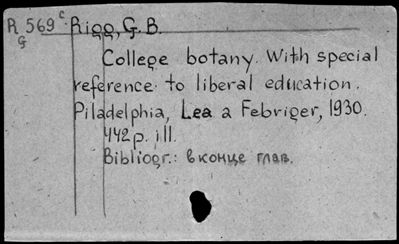 R 569 c Rigg, G. B.
G
College botany. With special
reference to liberal education.
Piladelphia, Lea a Febriger, 1930.
442 p. ill.
Bibliogr.: в конце глав.